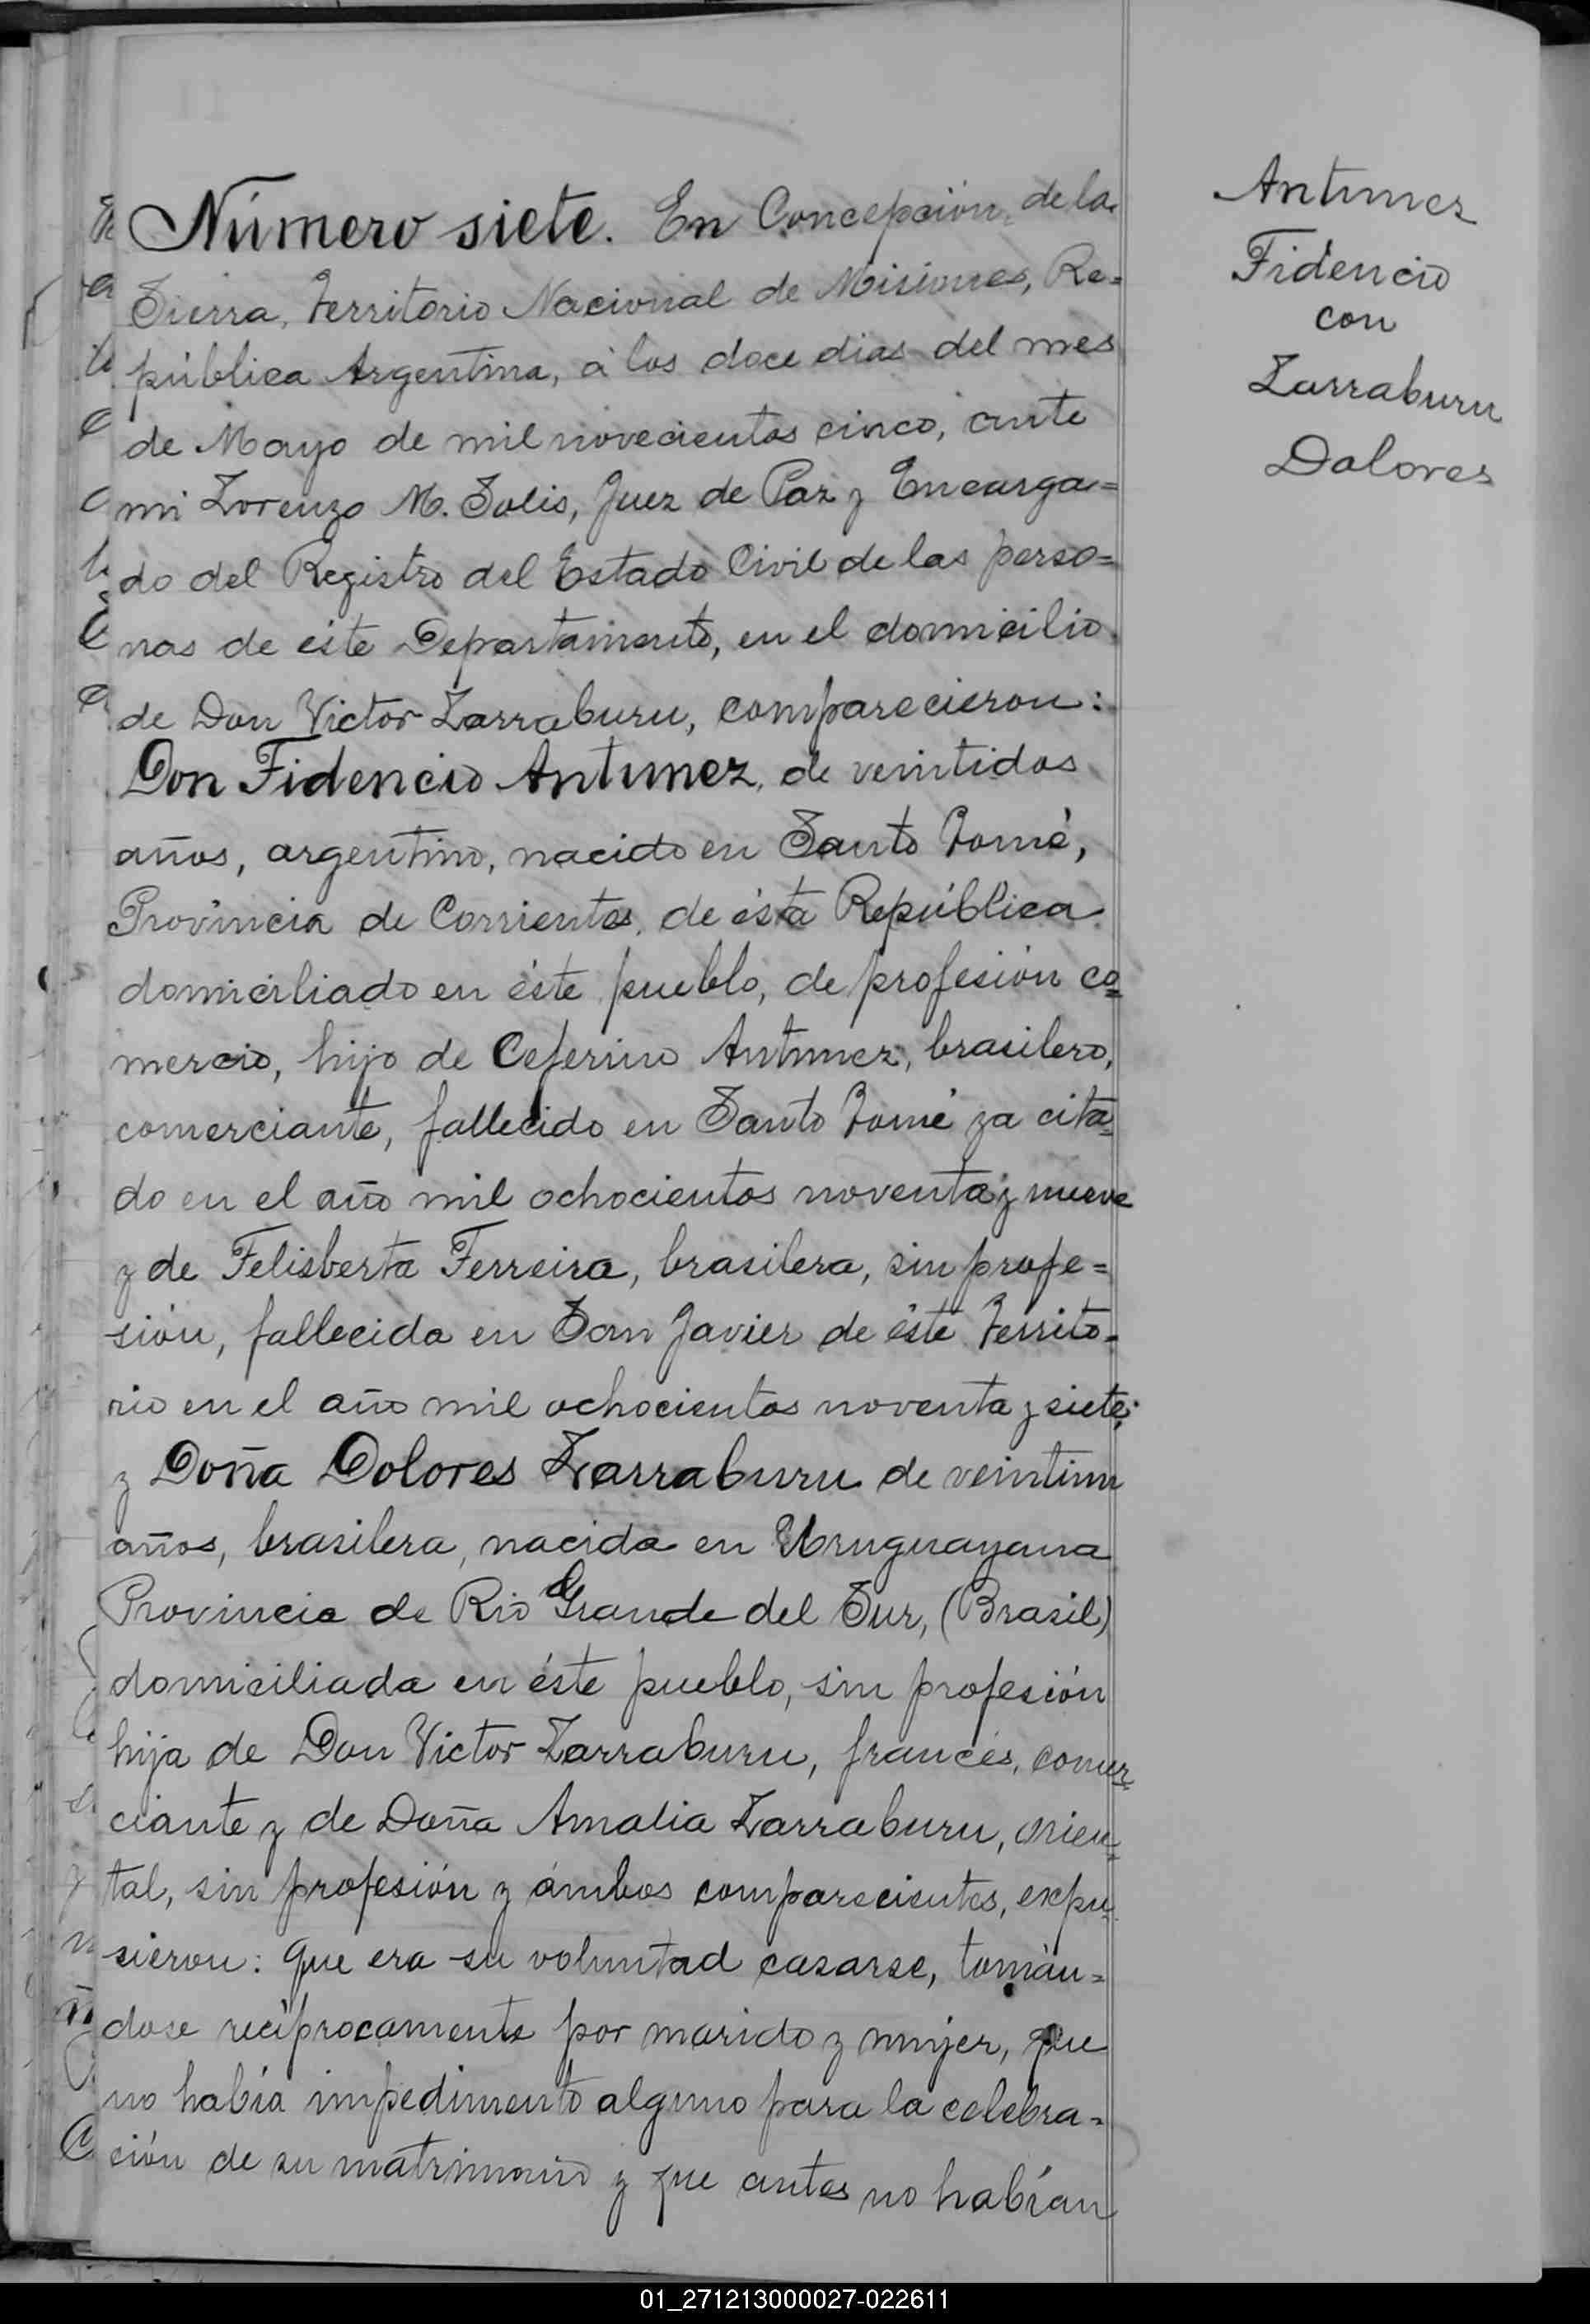 Número siete. En Concepción de la
Sierra, Territorio Nacional de Misiones, Re=
pública Argentina, á los doce dias del mes
de Mayo de mil novecientos cinco, ante
mi Lorenzo M. Solis, Juez de Paz y Encarga=
do del Registro del Estado Civil de las perso=
nas de éste Departamento, en el domicilio
de Don Victor Larraburu, comparecieron:
Don Fidencio Antunez, de veintidos
años, argentino, nacido en Santo Tomé,
Provincia de Corrientes, de ésta República
domiciliado en éste pueblo, de profesión co=
mercio, hijo de Ceferino Antunez, brasilero,
comerciante, fallecido en Santo Tomé ya cita=
do en el año mil ochocientos noventa y nueve
y de Felisberta Ferreira, brasilera, sin profe=
sión, fallecida en San Javier de éste Territo=
rio en el año mil ochocientos noventa y siete;
y Doña Dolores Larraburu de veintiun
años, brasilera, nacida en Uruguayana
Provincia de Rio Grande del Sur, (Brasil)
domiciliada en éste pueblo, sin profesión
hija de Don Victor Larraburu, francés, comer=
ciante y de Doña Amalia Larraburu, orien=
tal, sin profesión y ámbos comparecientes, expu=
sieron: Que era su voluntad casarse, tomán=
dose recíprocamente por marido y mujer, que
no había impedimento alguno para la celebra=
ción de su matrimonio y que antes no habían
Antunez
Fidencio
con
Larraburu
Dolores
01_271213000027-022611